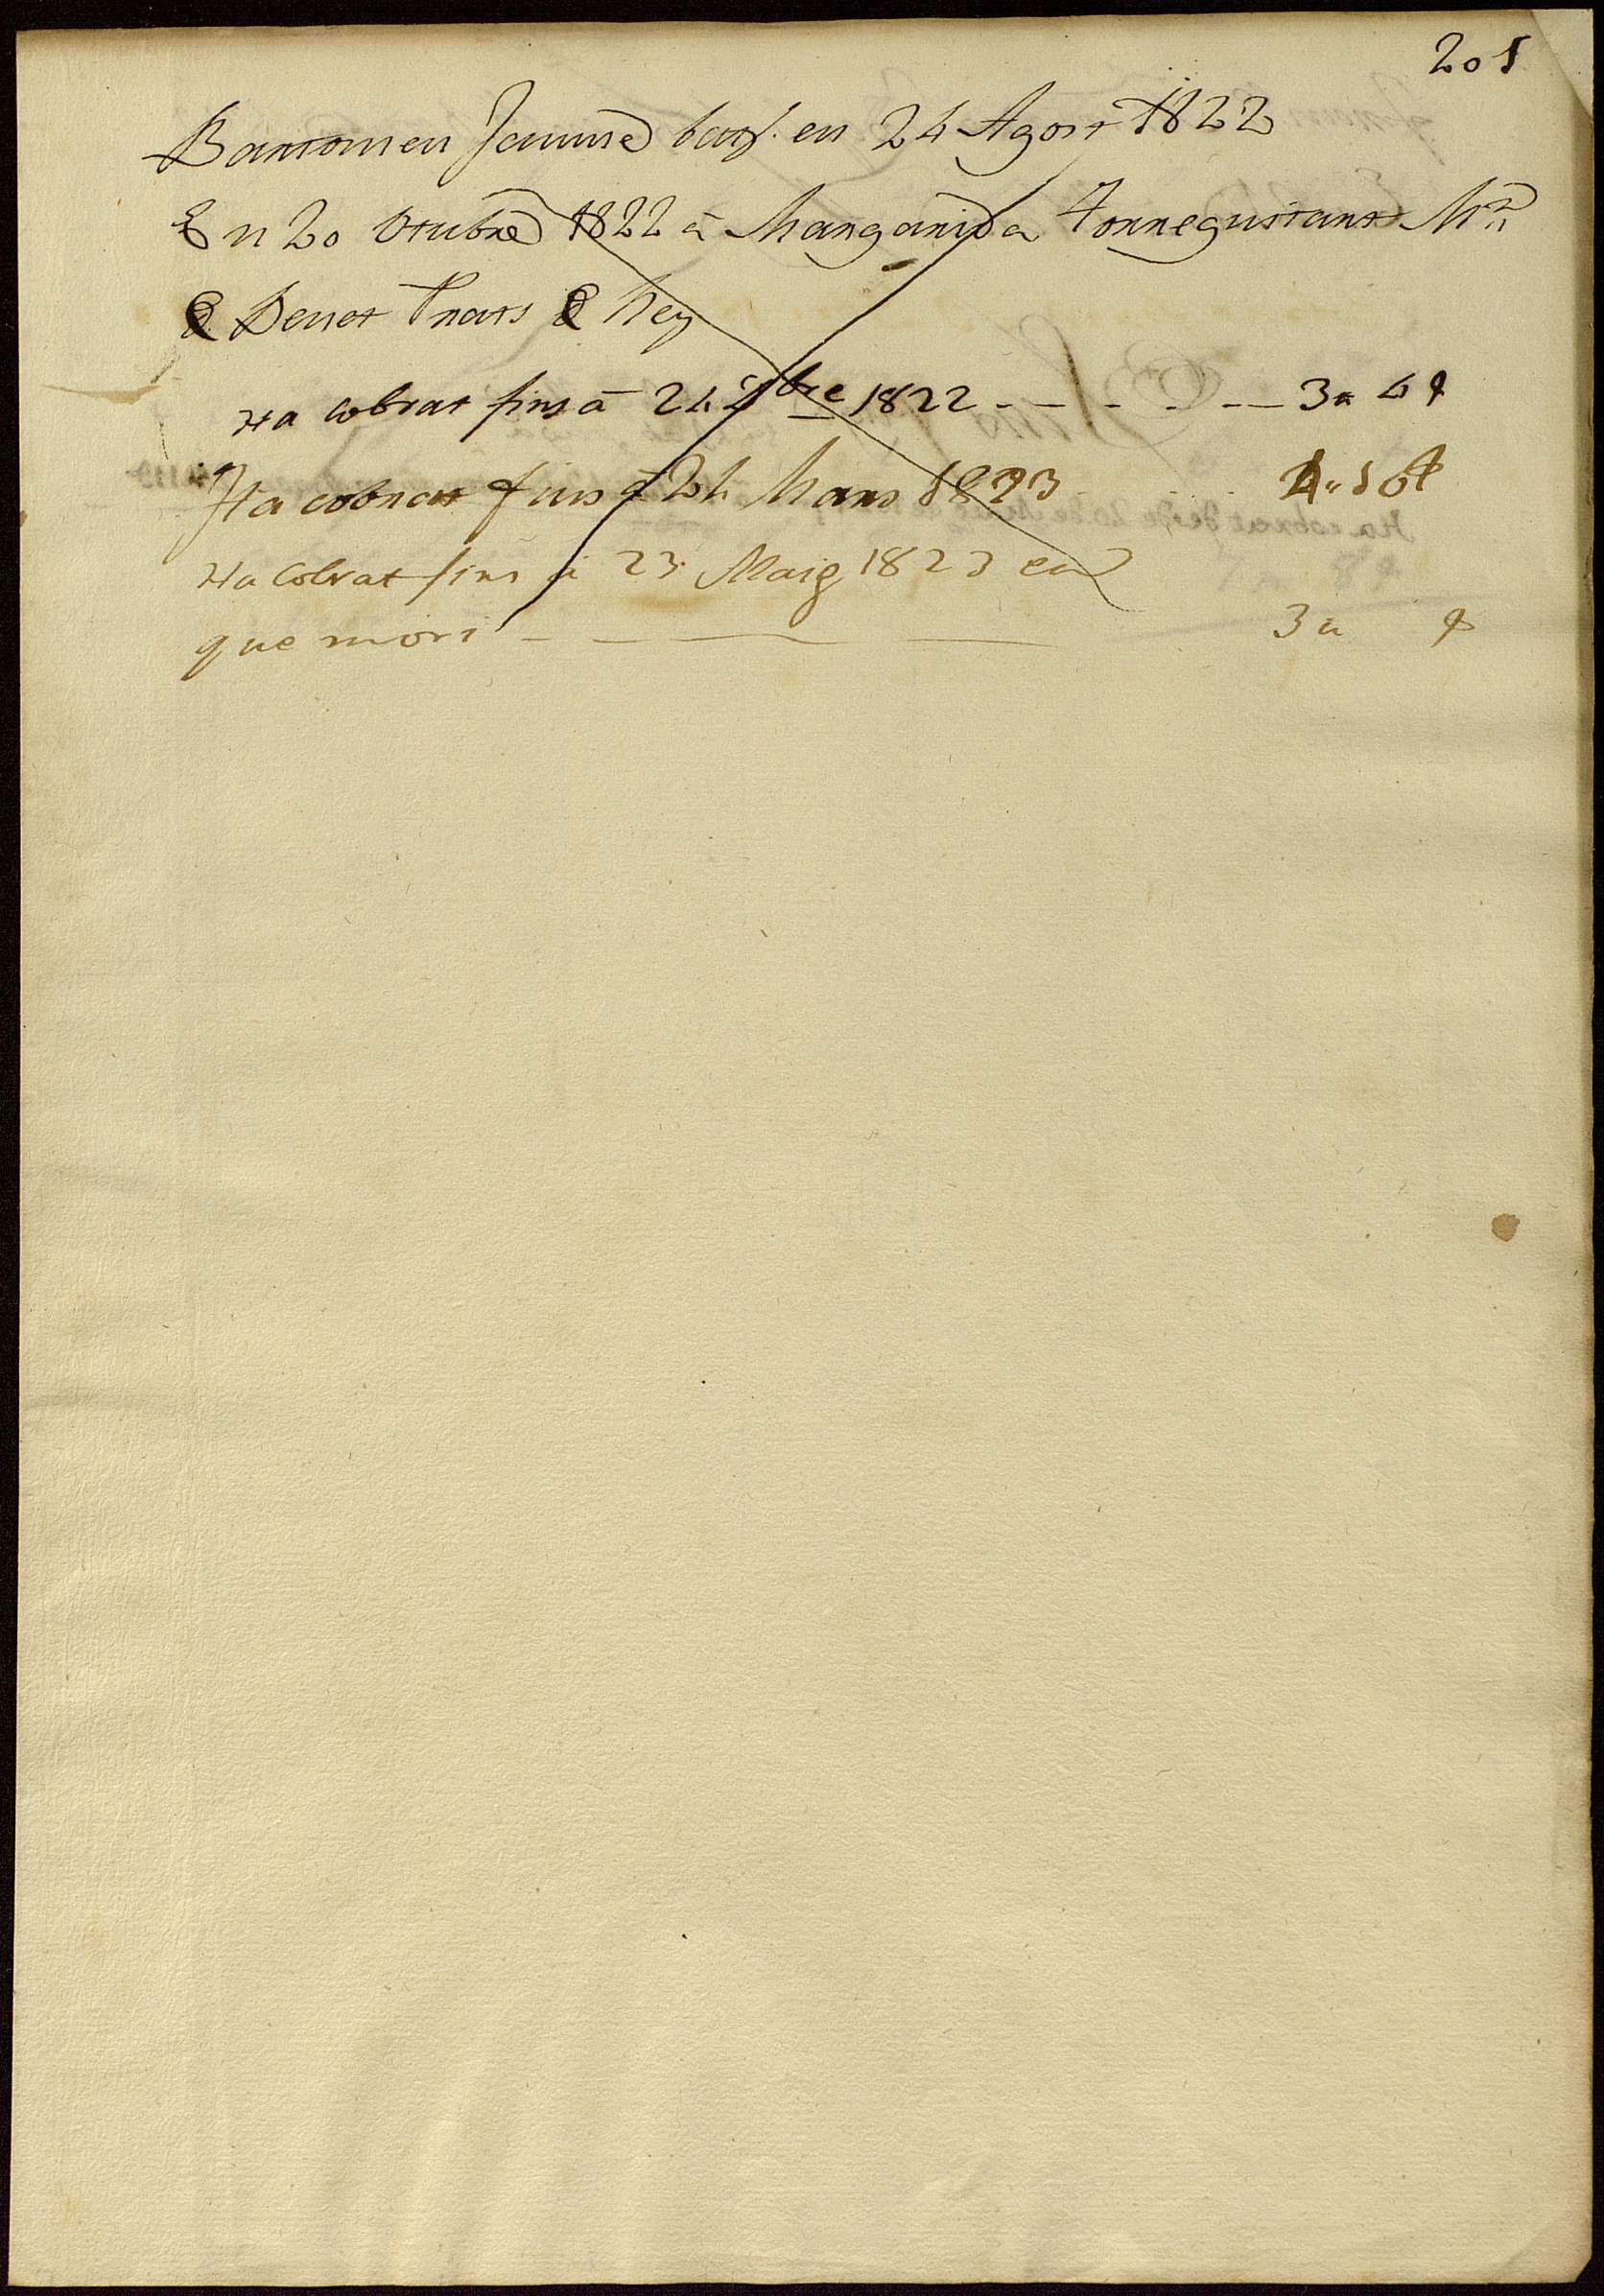 201
Bartomeu Jaume bat. en 24 Agost 1822
En 20 Otubre 1822 a Margarida Torregustant Mr.
de Benet Prats de Rey
Ha cobrat fins a 24 Xbre 1822 - - - - - 3 " 6
Ha cobrat fins a 24 Mars 1823
Ha Cobrat fins a 23 Maig 1823 en
que mori - — — 3 "